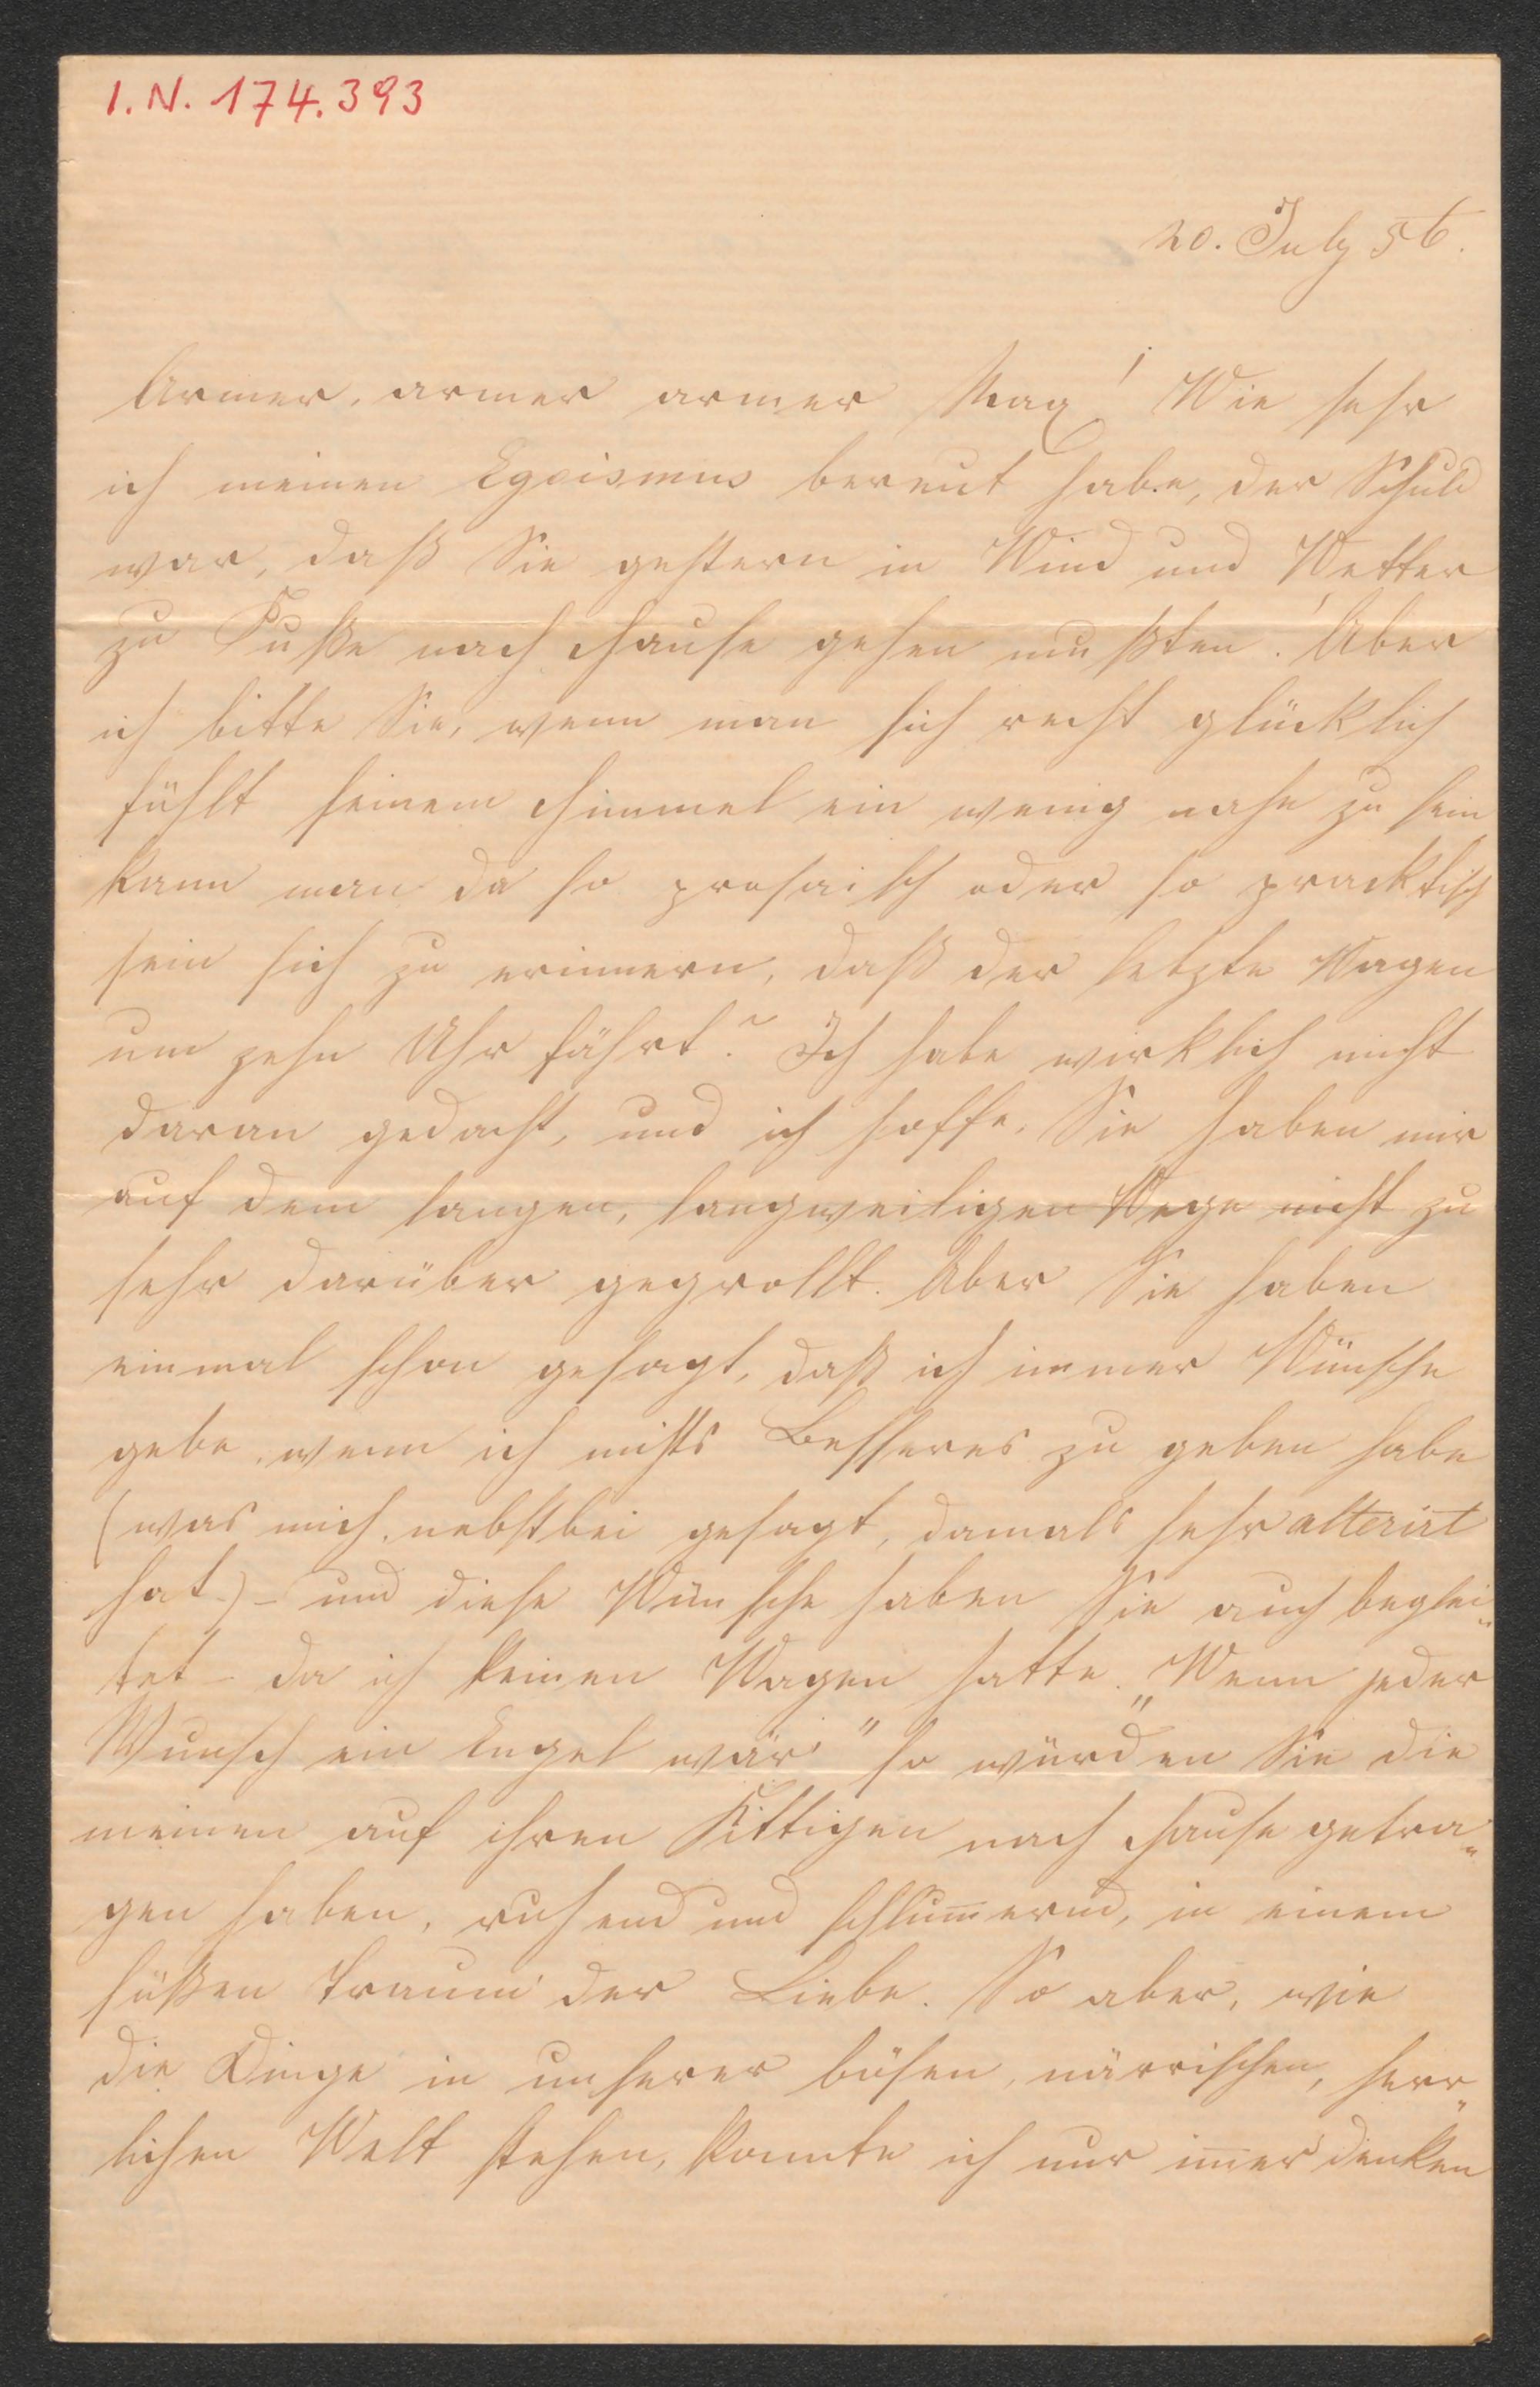 I. N. 174.393
20. July 56.
Armer, armer armer Max! Wie sehr
ich meinen Egoismus bereut habe, der Schuld
war, daß Sie gestern in Wind und Wetter
zu Fuße nach Hause gehen mußten! Aber
ich bitte Sie, wenn man sich recht glücklich
fühlt seinem Himmel ein wenig nahe zu sein
kann man da so prosaisch oder so pracktisch
sein sich zu erinnern, daß der letzte Wagen
um zehn Uhr fährt? Ich habe wirklich nicht
daran gedacht, und ich hoffe, Sie haben mir
auf dem langen, langweiligen Wege nicht zu
sehr darüber gegrollt. Aber Sie haben
einmal schon gesagt, daß ich immer Wünsche
gebe, wenn ich nichts Besseres zu geben habe
(was mich, nebstbei gesagt, damals sehr alterirt
hat) – und diese Wünsche haben Sie auch beglei„
tet – da ich keinen Wagen hatte. „Wenn jeder
Wunsch ein Engel wär'" so würden Sie die
meinen auf ihren Fittigen nach Hause getra„
gen haben, ruhend und schlum̅ernd, in einem
süßen Traum der Liebe. So aber, wie
die Dinge in unserer bösen, närrischen, herr„
lichen Welt stehen, konnte ich nur im̅er denken